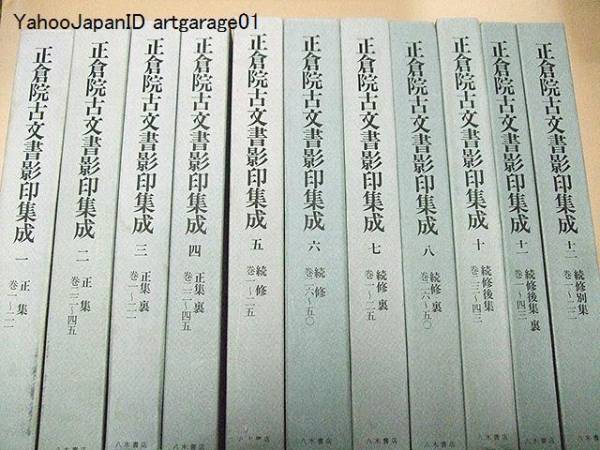 YahooJapanID artgarage01
正倉院古文書影印集成 一 正集 巻一~二一
正倉院古文書影印集成 二 正集 巻二二~四五
正倉院古文書影印集成 三 正集 裏 巻一~二一
正倉院古文書影印集成 四 正集 裏 巻二二~四五
正倉院古文書影印集成 五 続修 巻一~二五
正倉院古文書影印集成 六 続修 巻二六~五〇
正倉院古文書影印集成 七 続修 裏 巻一~二五
正倉院古文書影印集成 八 続修 裏 巻二六~五〇
正倉院古文書影印集成 十 続修後集 巻二三~四三
正倉院古文書影印集成 十一 続修後集 裏 巻一~四三
正倉院古文書影印集成 十二 続修別集 巻一~二二
八木書店
八木書店
八木書店
八木書店
八木書店
八木書店